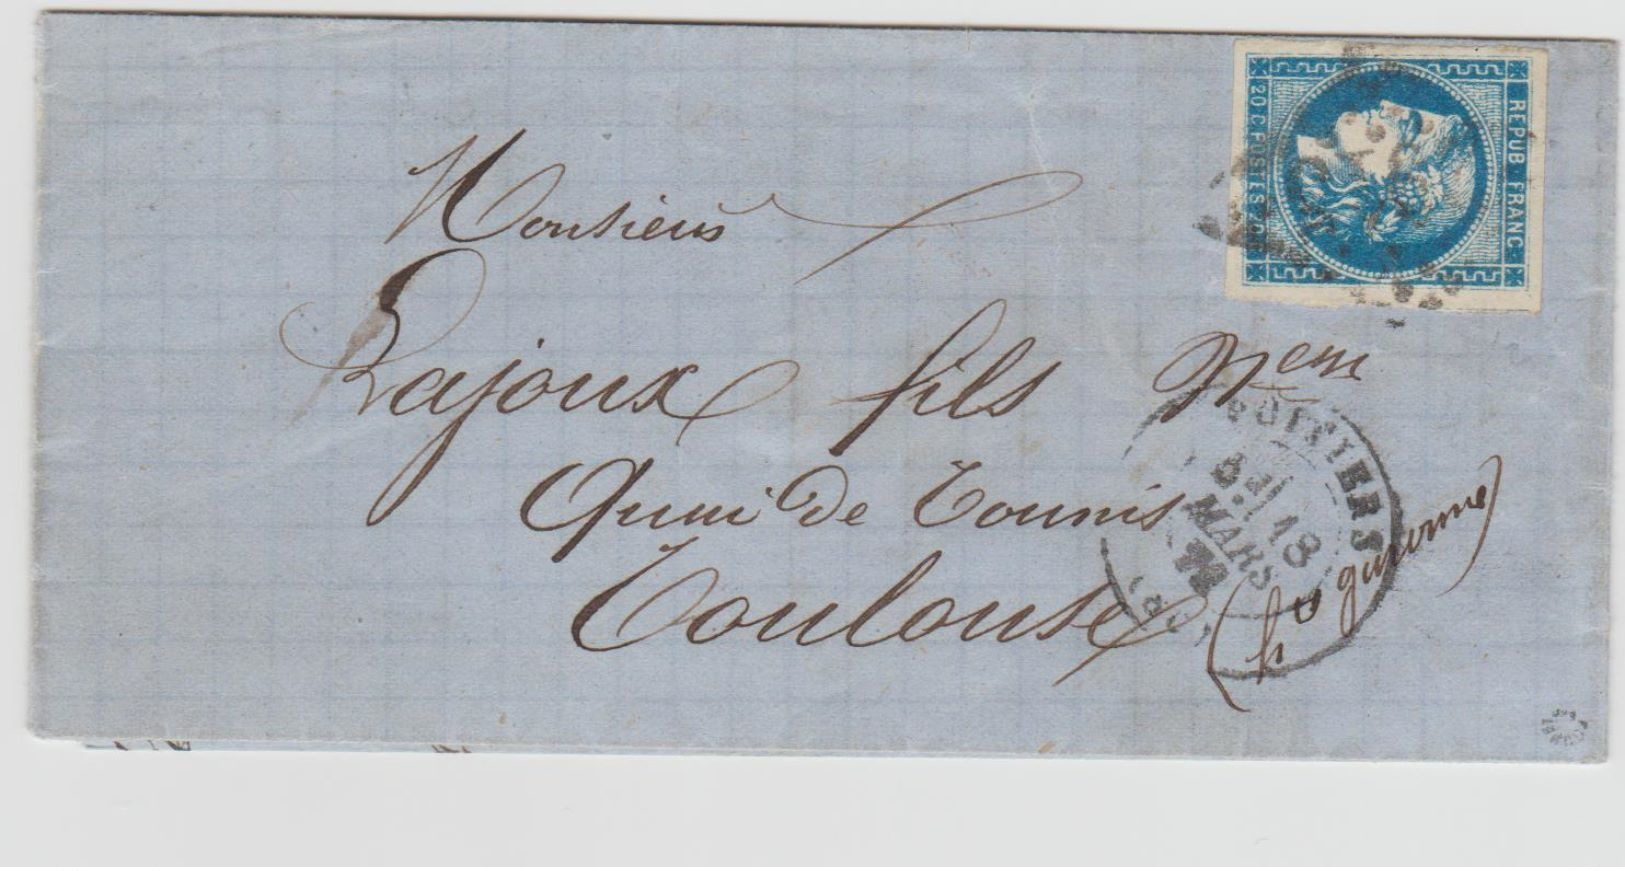 REPUB FRANC
20 C POSTES 20 C
Monsieur
Lajoux fils Nem
Quai de Tounis
Toulouse
POITIERS
18
MARS
71
(hte garonne)